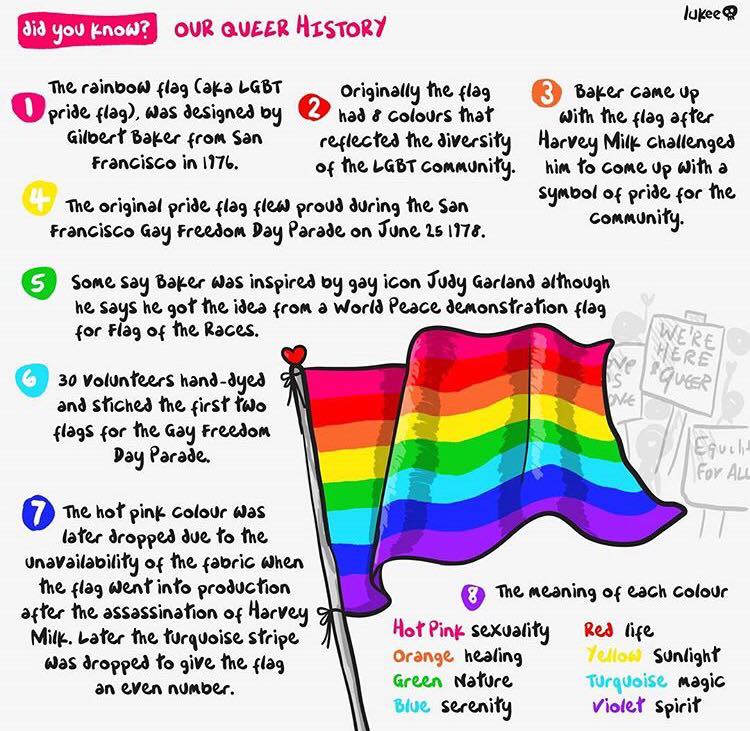 did you know? OUR QUEER HISTORY
lukee
1 The rainbow flag (aka LGBT
pride flag), was designed by
Gilbert Baker from San
Francisco in 1976.
2 Originally the flag
had 8 colours that
reflected the diversity
of the LGBT community.
3 Baker came up
with the flag after
Harvey Milk challenged
him to come up with a
symbol of pride for the
community.
4 The original pride flag flew proud during the San
Francisco Gay Freedom Day Parade on June 25 1978.
5 Some say Baker was inspired by gay icon Judy Garland although
he says he got the idea from a World Peace demonstration flag
for Flag of the Races.
6 30 volunteers hand-dyed
and stiched the first two
flags for the Gay Freedom
Day Parade.
7 The hot pink colour was
later dropped due to the
unavailability of the fabric when
the flag went into production
after the assassination of Harvey
Milk. Later the turquoise stripe
was dropped to give the flag
an even number.
WE'RE
HERE
&QUEER
VE
IS
OVE
Equalit
For All
8 The meaning of each colour
Hot Pink sexuality
Red life
Orange healing
Yellow Sunlight
Green Nature
Turquoise magic
Blue serenity
Violet spirit